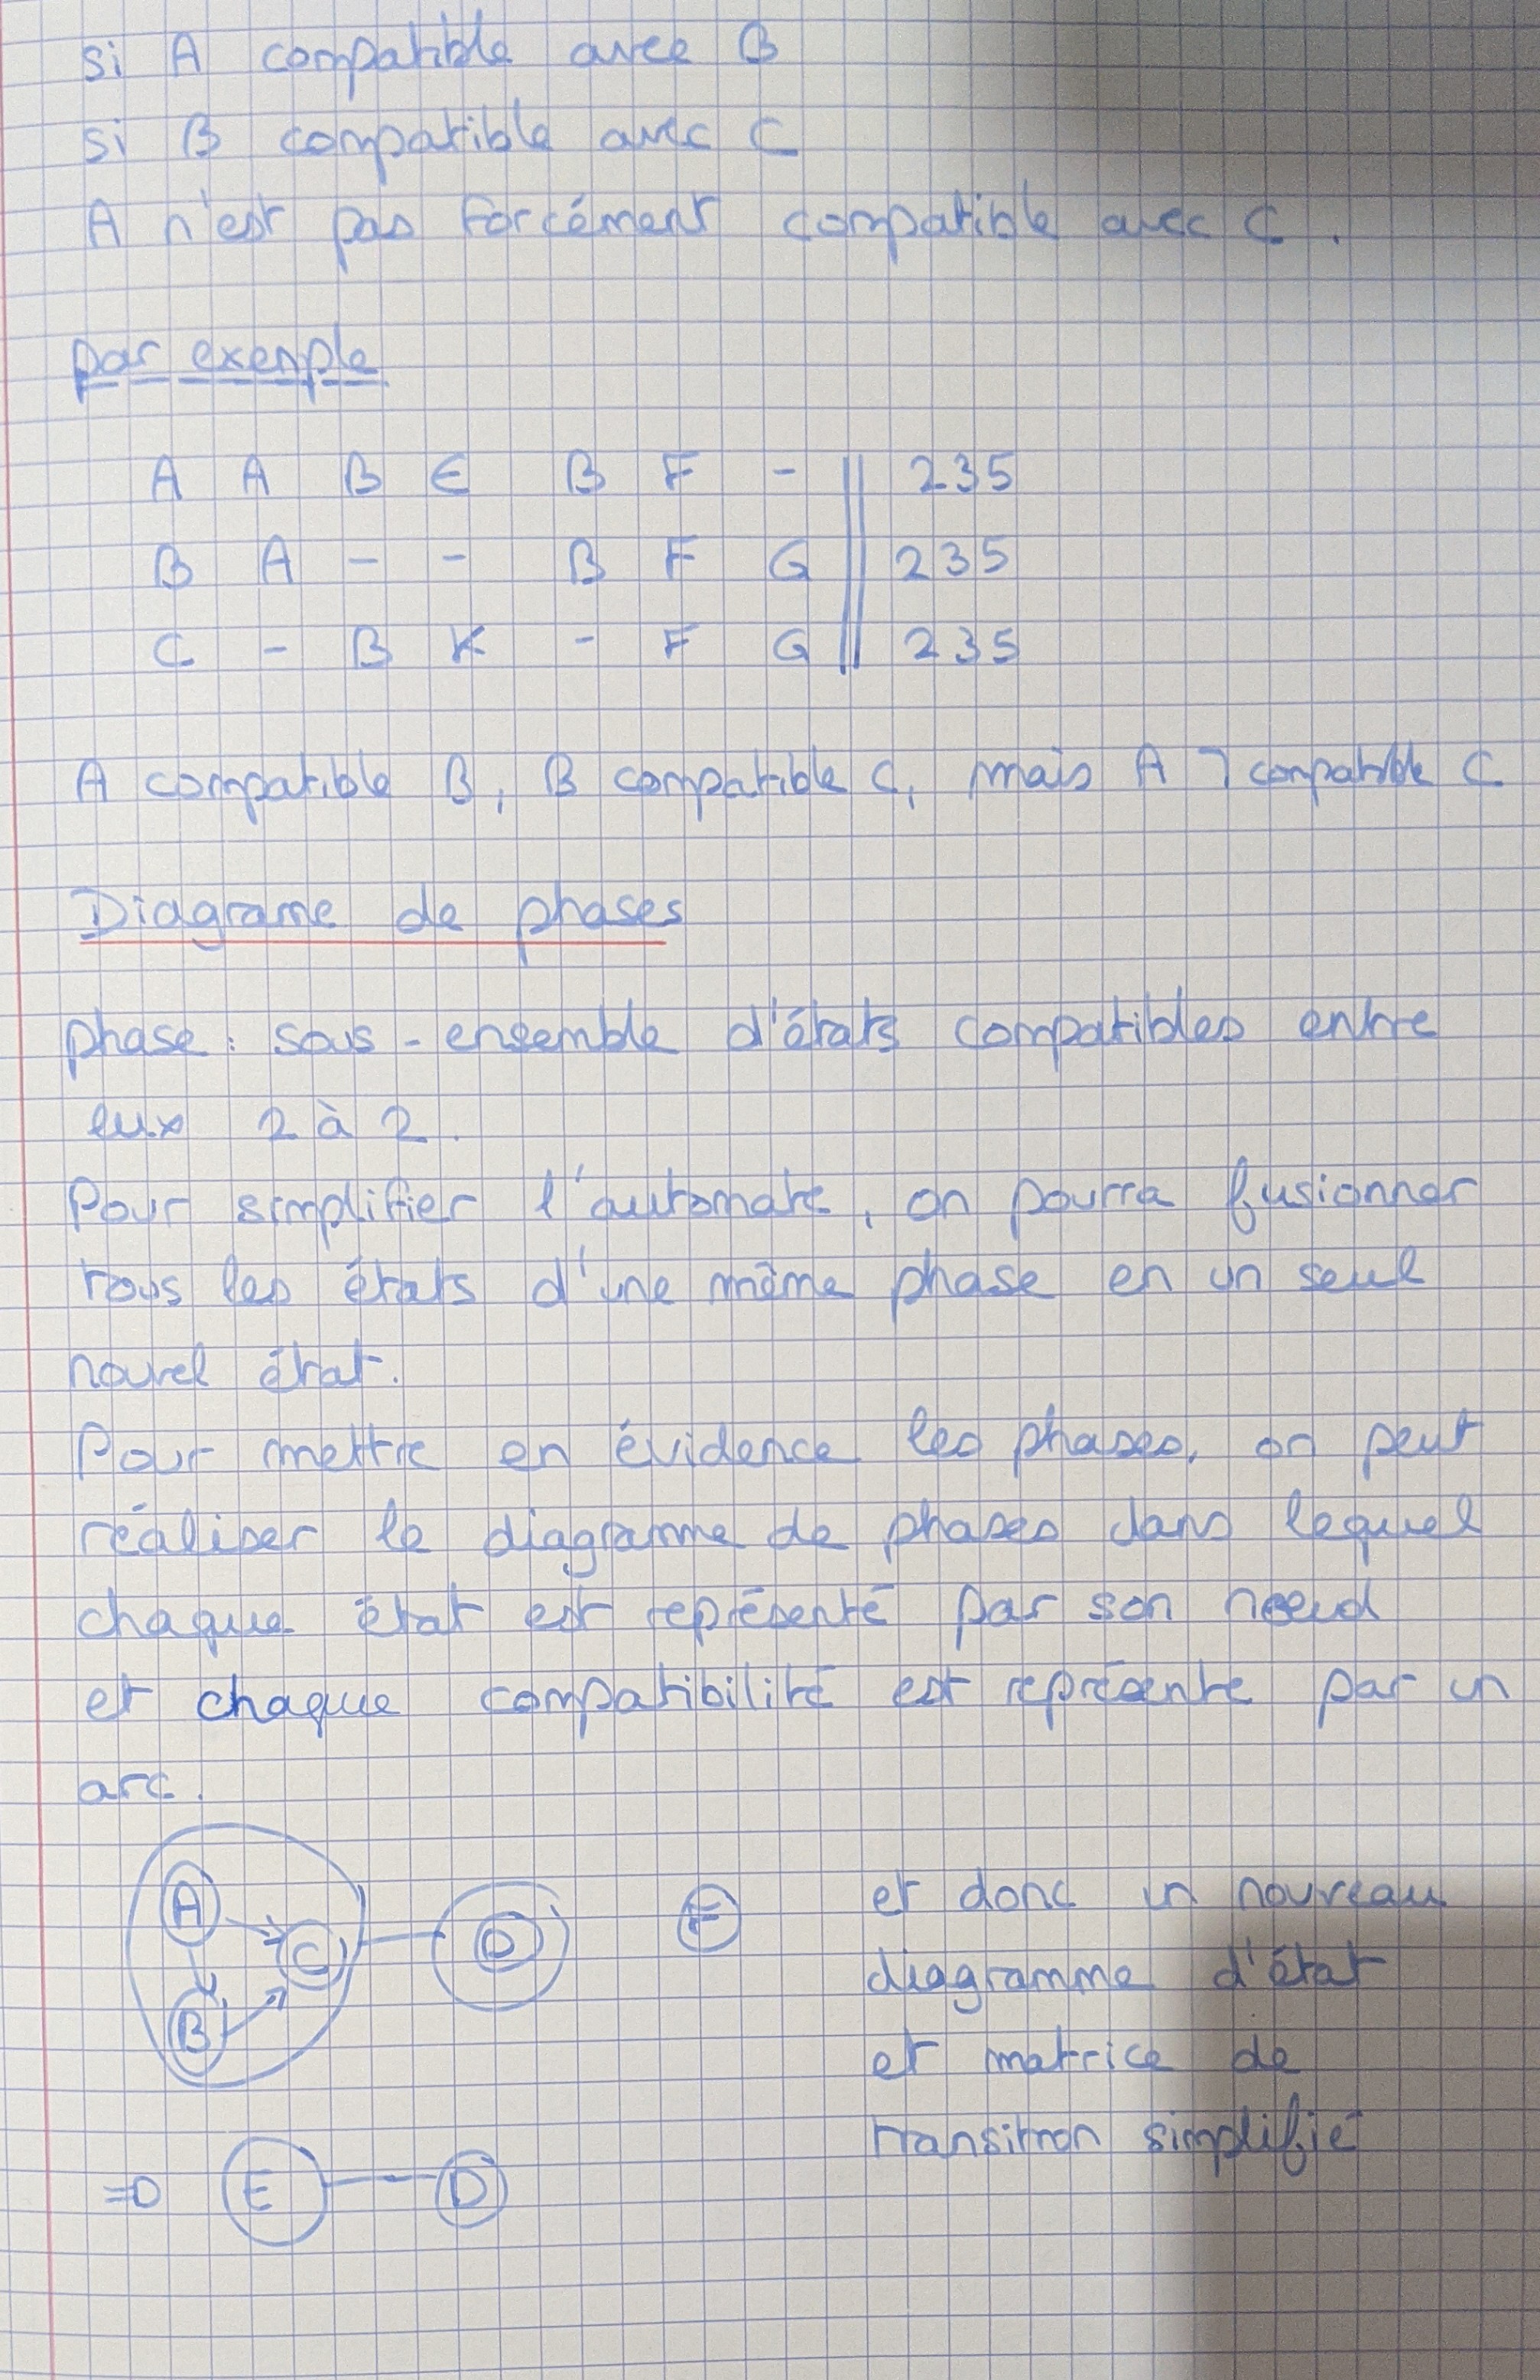 si A compatible avec B
si B compatible avec C
A n'est pas forcément compatible avec C.
par exemple
A A B E B F - || 235
B A - - B F G || 235
C - B K - F G || 235
A compatible B, B compatible C, mais A ⌐ compatible C
Diagrame de phases
phase : sous-ensemble d'états compatibles entre
eux 2 à 2.
Pour simplifier l'automate, on pourra fusionner
tous les états d'une même phase en un seul
nouvel état.
Pour mettre en évidence les phases, on peut
réaliser le diagramme de phases dans lequel
chaque état est représenté par son noeud
et chaque compatibilité est représente par un
arc.
A
C
D
B
et donc un nouveau
diagramme d'état
et matrice de
transition simplifié
=D E D